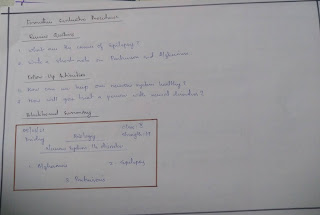 Formative Evaluation Procedures
Review Questions
1. What are the causes of epilepsy?
2. Write a short note on Parkinson and Alzheimers.
Follow Up Activities
1. How can we keep our nervous system healthy?
2. How will you treat a person with mental disorder?
Blackboard Summary
Class - X
Biology
Strength:
Nervous System Its disorder
1. Alzheimers
2. epilepsy
3. Parkinsons